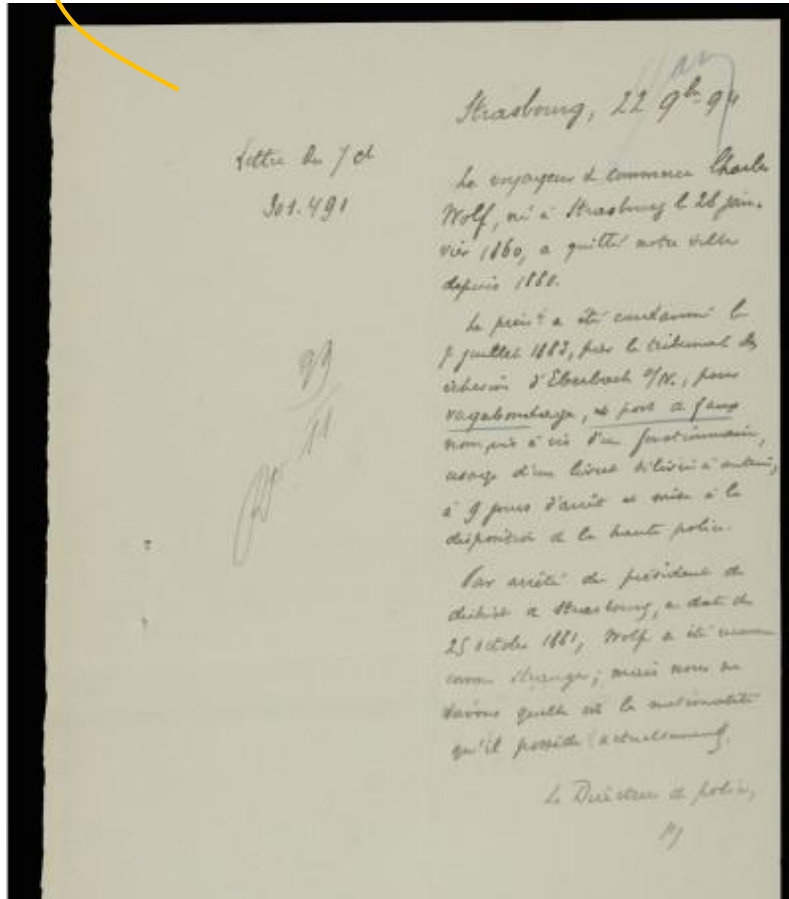 Strasbourg, 22 9b 94
Lettre du 7 ct
301.491
Le voyageur de commerce Charles
Wolf, né à Strasbourg le 26 jan-
vier 1860, a quitté notre ville
depuis 1880.
Le préít a été condamné le
7 juillet 1883, par le tribunal des
échevins d'Eberbach s/N., pour
vagabondage, et port de faux
nom, vis à vis d'un fonctionnaire,
usage d'un livret délivré à autrui,
à 9 jours d'arrêt et mise à la
disposition de la haute police.
Par arrêté du président du
district de Strasbourg, en date du
25 octobre 1881, Wolf a été reconnu
comme étranger; mais nous ne
savons quelle est la nationalité
qu'il possède actuellement.
Le Directeur de police,